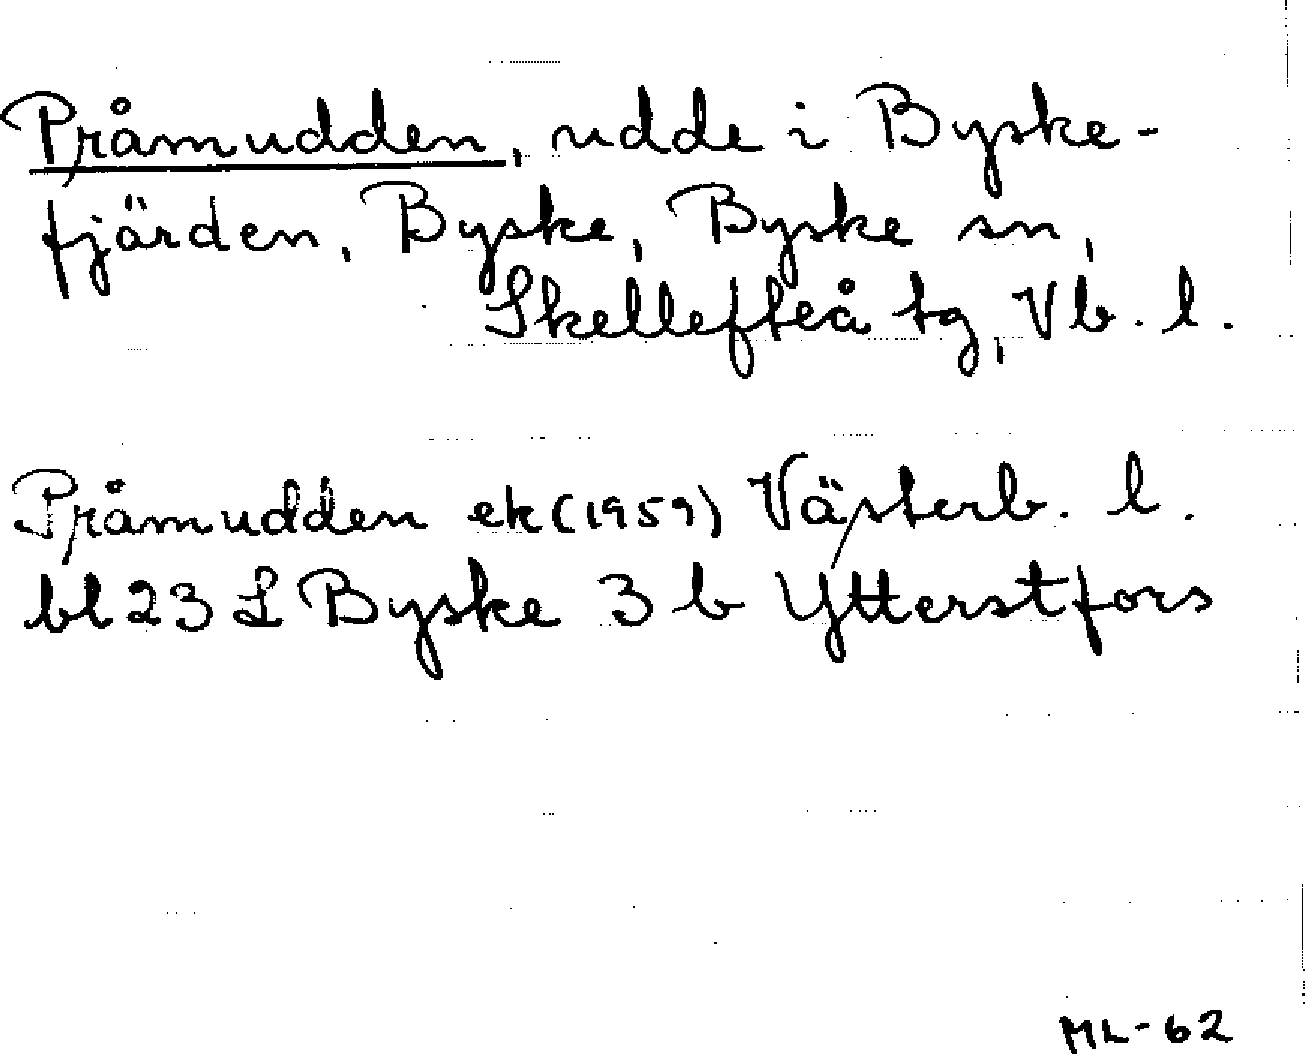 Pråmudden, udde i Byske-
fjärden, Byske, Byske sn,
Skellefteå tg, Vb. l.
Pråmudden ek (1959) Västerb. l.
bl 23 L Byske 3 b Ytterstfors
ML-62